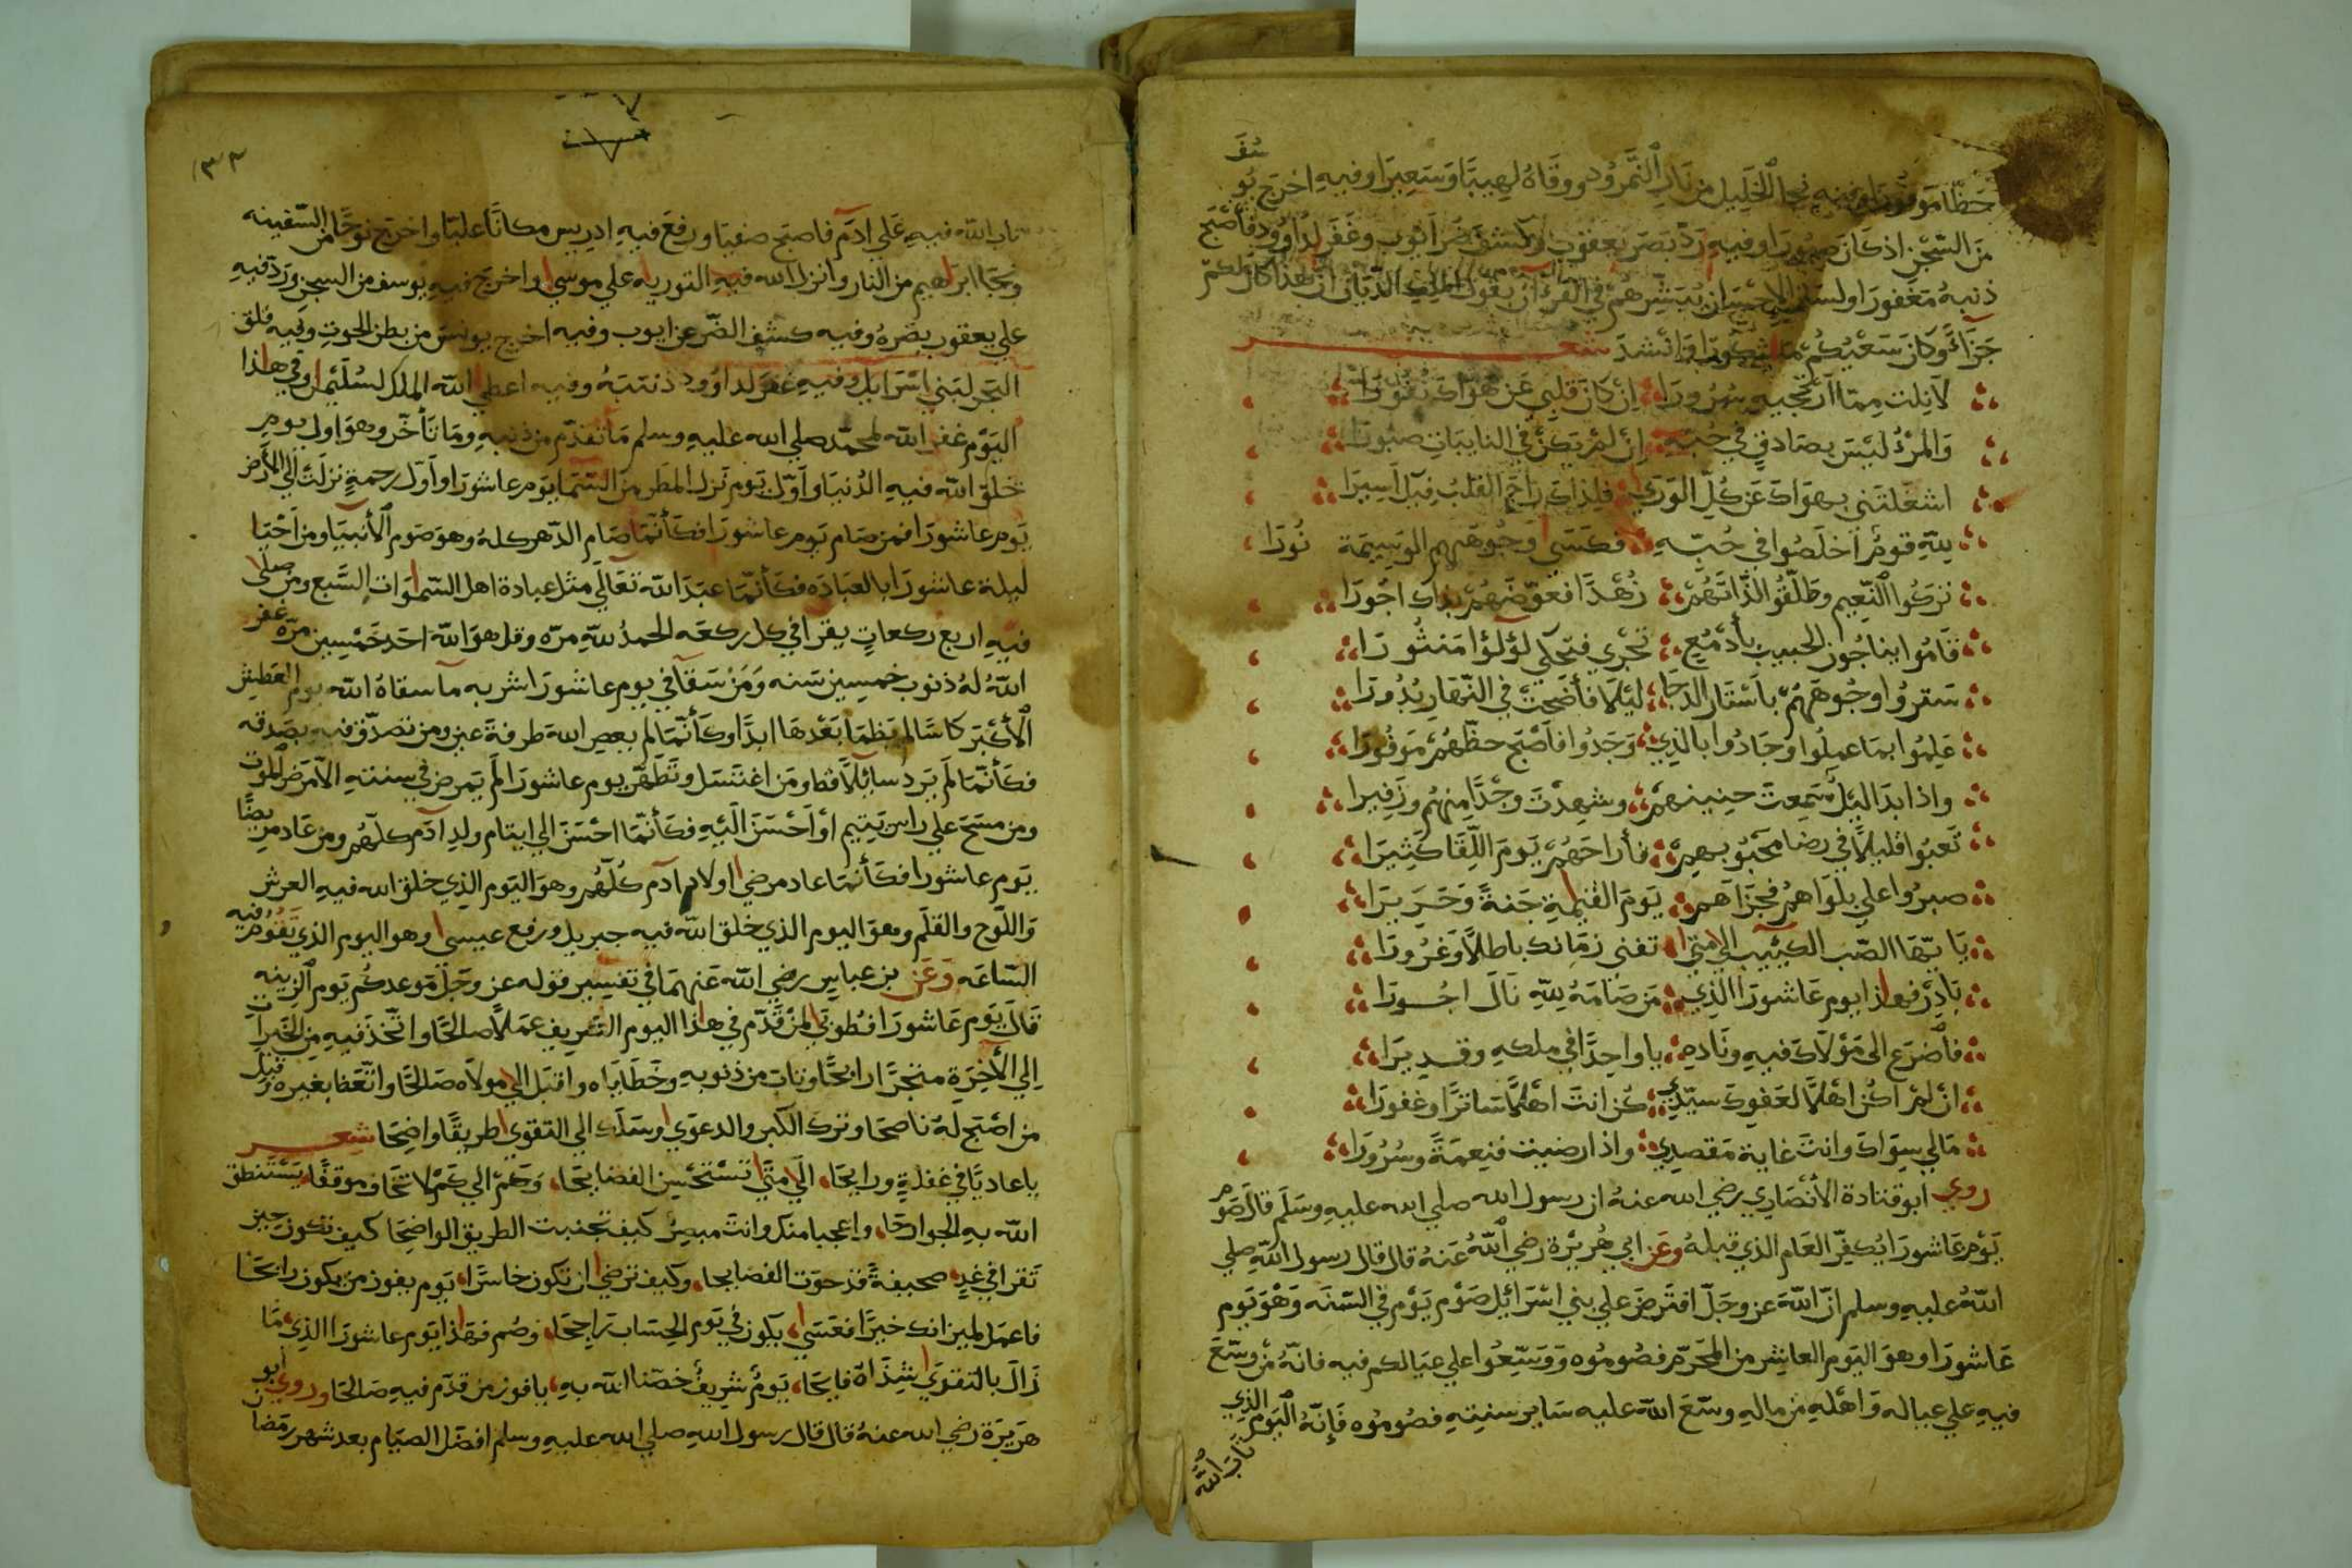 حظا موفورا وفيه نجا الخليل من نار النمرود ووقاه لهيبا وسعيرا وفيه اخرج يوسف
من السجن اذ كان صبورا وفيه رد بصر يعقوب وكشف ضر ايوب وغفر لداوود فاصبح
ذنبه مغفورا ان يقول الملك الديان ان هذا كان لكم
جزاء وكان سعيكم مشكورا وانشد شعر
لا نلت مما ارتجيه سرورا ان كان قلبي عن هواك نفورا
والمرؤ ليس بصادق في حبه ان لم يكن في النايبات صبورا
اشغلتني بهواك عن كل الورى فلذاك راح القلب فيك اسيرا
لله قوم اخلصوا في حبه فكسى وجوههم الوسيمة نورا
تركوا النعيم وطلقوا لذاتهم زهدا فعوضهم بذاك اجورا
قاموا يناجون الحبيب بادمع تجري فتحكي لؤلؤا منثورا
ستروا وجوههم باستار الدجا ليلا فأضحت في النهار بدورا
علموا بما عملوا وجادوا بالذي وجدوا فاصبح حظهم موفورا
واذا بدا ليل سمعت حنينهم وشهدت وجدا منهم وزفيرا
تعبوا قليلا في رضا محبوبهم فأراحهم يوم اللقا كثيرا
صبروا علي بلواهم فجزاهم يوم القيمة جنة وحريرا
يا ايها الصب الكئيب الي متى تفني زمانك باطلا وغرورا
بادر فهذا يوم عاشورا الذي من صامه لله نال اجورا
فاضرع الى مولاك فيه وناده يا واحدا في ملكه وقديرا
ان لم اكن اهلا لعفوك سيدي كن انت اهلا ساترا وغفورا
مالي سواك وانت غاية مقصدي واذا رضيت فنعمة وسرورا
روي ابو قتادة الأنصاري رضي الله عنه ان رسول الله صلي الله عليه وسلم قال صوم
يوم عاشورا يكفر العام الذي قبله وعن ابي هريرة رضي الله عنه قال قال رسول الله صلي
الله عليه وسلم ان الله عز وجل افترض علي بني اسرائيل صوم يوم في السنه وهو يوم
عاشورا وهو اليوم العاشر من المحرم فصوموه ووسعوا علي عيالكم فيه فانه من وسع
فيه علي عياله واهله من ماله وسع الله عليه ساير سنته فصوموه فإنه اليوم الذي
تاب الله
١٣٣
تاب الله فيه علي ادم فاصبح صفيا ورفع فيه ادريس مكانا عليا واخرج نوحا من السفينه
ونجا ابراهيم من النار وانزل الله فيه التوريه علي موسي واخرج فيه يوسف من السجن ورد فيه
علي يعقوب بصره وفيه كشف الضر عن ايوب وفيه اخرج يونس من بطن الحوت وفيه فلق
البحر لبني اسرايل وفيه غفر لداوود ذنبه وفيه اعطي الله الملك لسليمن وفي هذا
اليوم غفر الله لمحمد صلي الله عليه وسلم ما تقدم من ذنبه وما تأخر وهو اول يوم
خلق الله فيه الدنيا واول يوم نزل المطر من السما يوم عاشورا واول رحمة نزلت الي الأرض
يوم عاشورا فمن صام يوم عاشورا فكأنما صام الدهر كله وهو صوم الأنبيا ومن احيا
ليلة عاشورا بالعباده فكأنما عبد الله تعالي مثل عبادة اهل السموات السبع ومن صلى
فيه اربع ركعات يقرا في كل ركعه الحمد لله مره وقل هو الله احد خمسين مره غفر
الله له ذنوب خمسين سنه ومن سقا في يوم عاشورا شربه ما سقاه الله يوم العطش
الأكبر كاسا لم يظما بعدها ابدا وكأنما لم يعص الله طرفة عين ومن تصدق فيه بصدقه
فكأنما لم يرد سايلا قط ومن اغتسل وتطهر يوم عاشورا لم يمرض في سنته الا مرض الموت
ومن مسح علي راس يتيم او احسن اليه فكأنما احسن الي ايتام ولد ادم كلهم ومن عاد مريضا
يوم عاشورا فكأنما عاد مرضي اولاد ادم كلهم وهو اليوم الذي خلق الله فيه العرش
واللوح والقلم وهو اليوم الذي خلق الله فيه جبريل ورفع عيسي وهو اليوم الذي تقوم فيه
الساعه وعن بن عباس رضي الله عنهما في تفسير قوله عز وجل موعدكم يوم الزينه
قال يوم عاشورا فطوبى لمن قدم في هذا اليوم الشريف عملا صالحا واتخذ فيه من الخيرات
الي الأخرة متجرا رابحا وتاب من ذنوبه وخطاياه واقبل الي مولاه صالحا واتعظ بغيره وقبل
من اصبح له ناصحا وترك الكبر والدعوي وسلك الي التقوي طريقا واضحا شعر
يا غاديا في غفلة ورايحا الي متى تستحسن الفضايحا وكم الي كم لا تخاف موقفا يستنطق
الله به الجوارحا واعجبا منك وانت مبصر كيف تجنبت الطريق الواضحا كيف تكون حين
تقرا في غد صحيفة قد حوت الفضايحا وكيف ترضي ان تكون خاسرا يوم يفوز من يكون رابحا
فاعمل لميزانك خيرا فعسي يكون في يوم الحساب راجحا وصم فهذا يوم عاشورا الذي ما
زال بالتقوي شذاه فايحا يوم شريف خصنا الله به يا فوز من قدم فيه صالحا وروي ابو
هريرة رضي الله عنه قال قال رسول الله صلي الله عليه وسلم افضل الصيام بعد شهر رمضان